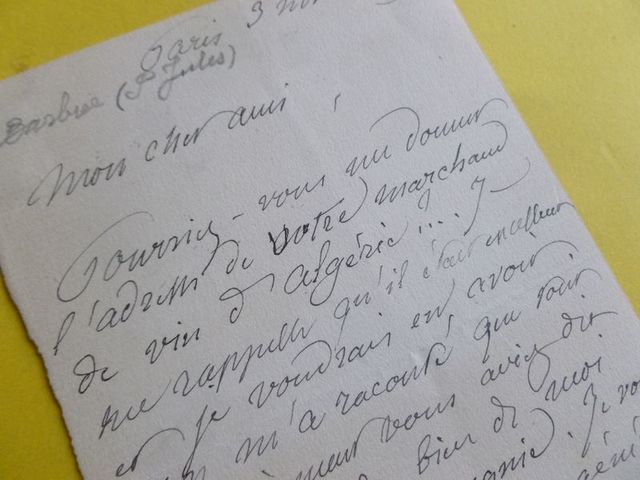 Paris 3
Barbier (P. Jules)
Mon cher ami,
Pourriez-vous me donner
l'adresse de votre marchand
de vin d'algérie?.... Je
me rappelle qu'il était excellent
et je voudrais en avoir
m'a raconté que
vous aviez dit
bien de moi
Je